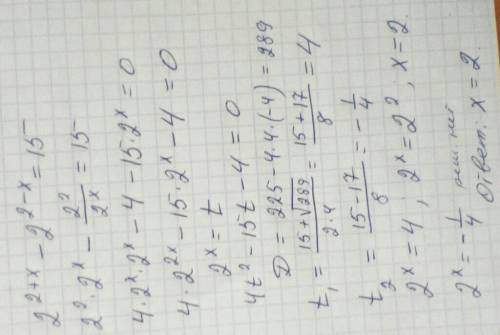 2^{2+x} - 2^{2-x} = 15
2^2 · 2^x - \frac{2^2}{2^x} = 15
4 · 2^x · 2^x - 4 - 15 · 2^x = 0
4 · 2^{2x} - 15 · 2^x - 4 = 0
2^x = t
4t^2 - 15t - 4 = 0
D = 225 - 4·4·(-4) = 289
t_1 = \frac{15+\sqrt{289}}{2·4} = \frac{15+17}{8} = 4
t_2 = \frac{15-17}{8} = -\frac{1}{4}
2^x = 4 ; 2^x = 2^2 , x = 2.
2^x = -\frac{1}{4} реш. нет
Ответ: x = 2.